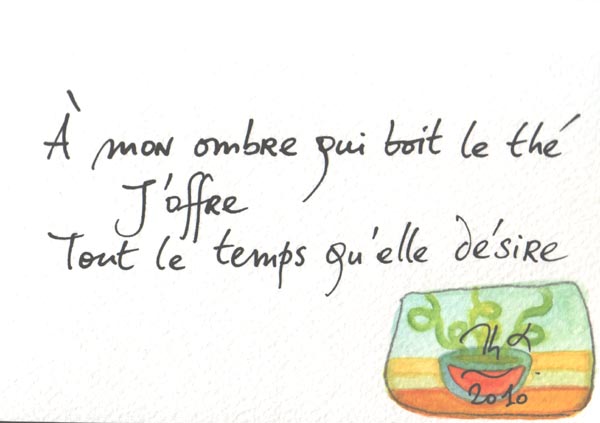 À mon ombre qui boit le thé
J'offre
Tout le temps qu'elle désire
2010